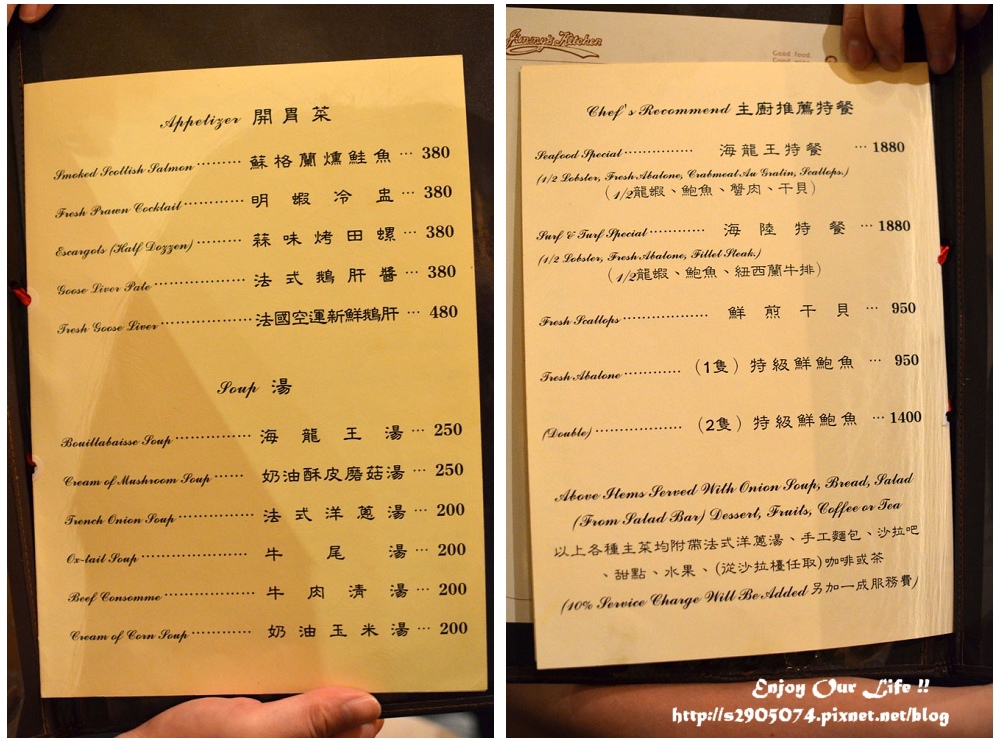 Appetizer 開胃菜
Smoked Scottish Salmon ········· 蘇格蘭燻鮭魚 ··· 380
Fresh Prawn Cocktail ············ 明蝦冷盅 ··· 380
Escargots (Half Dozzen) ········· 蒜味烤田螺 ··· 380
Goose Liver Pate ·············· 法式鵝肝醬 ··· 380
Fresh Goose Liver ················· 法國空運新鮮鵝肝 ··· 480
Soup 湯
Bouillabaisse Soup ·············· 海龍王湯 ··· 250
Cream of Mushroom Soup ······ 奶油酥皮磨菇湯 ··· 250
French Onion Soup ············ 法式洋蔥湯 ··· 200
Ox-tail Soup ················· 牛尾湯 ··· 200
Beef Consomme ················· 牛肉清湯 ··· 200
Cream of Corn Soup ··········· 奶油玉米湯 ··· 200
Jimmy's Kitchen
Good food
Chef's Recommend 主廚推薦特餐
Seafood Special ··············· 海龍王特餐 ··· 1880
(1/2 Lobster, Fresh Abalone, Crabmeat Au Gratin, Scallops.)
(1/2龍蝦、鮑魚、蟹肉、干貝)
Surf & Turf Special ············ 海陸特餐 ··· 1880
(1/2 Lobster, Fresh Abalone, Fillet Steak.)
(1/2龍蝦、鮑魚、紐西蘭牛排)
Fresh Scallops ·················· 鮮煎干貝 ··· 950
Fresh Abalone ············· (1隻)特級鮮鮑魚 ··· 950
(Double) ··················· (2隻)特級鮮鮑魚 ··· 1400
Above Items Served With Onion Soup, Bread, Salad
(From Salad Bar) Dessert, Fruits, Coffee or Tea
以上各種主菜均附帶法式洋蔥湯、手工麵包、沙拉吧
、甜點、水果、(從沙拉檯任取)咖啡或茶
(10% Service Charge Will Be Added 另加一成服務費)
Enjoy Our Life !!
http://s2905074.pixnet.net/blog